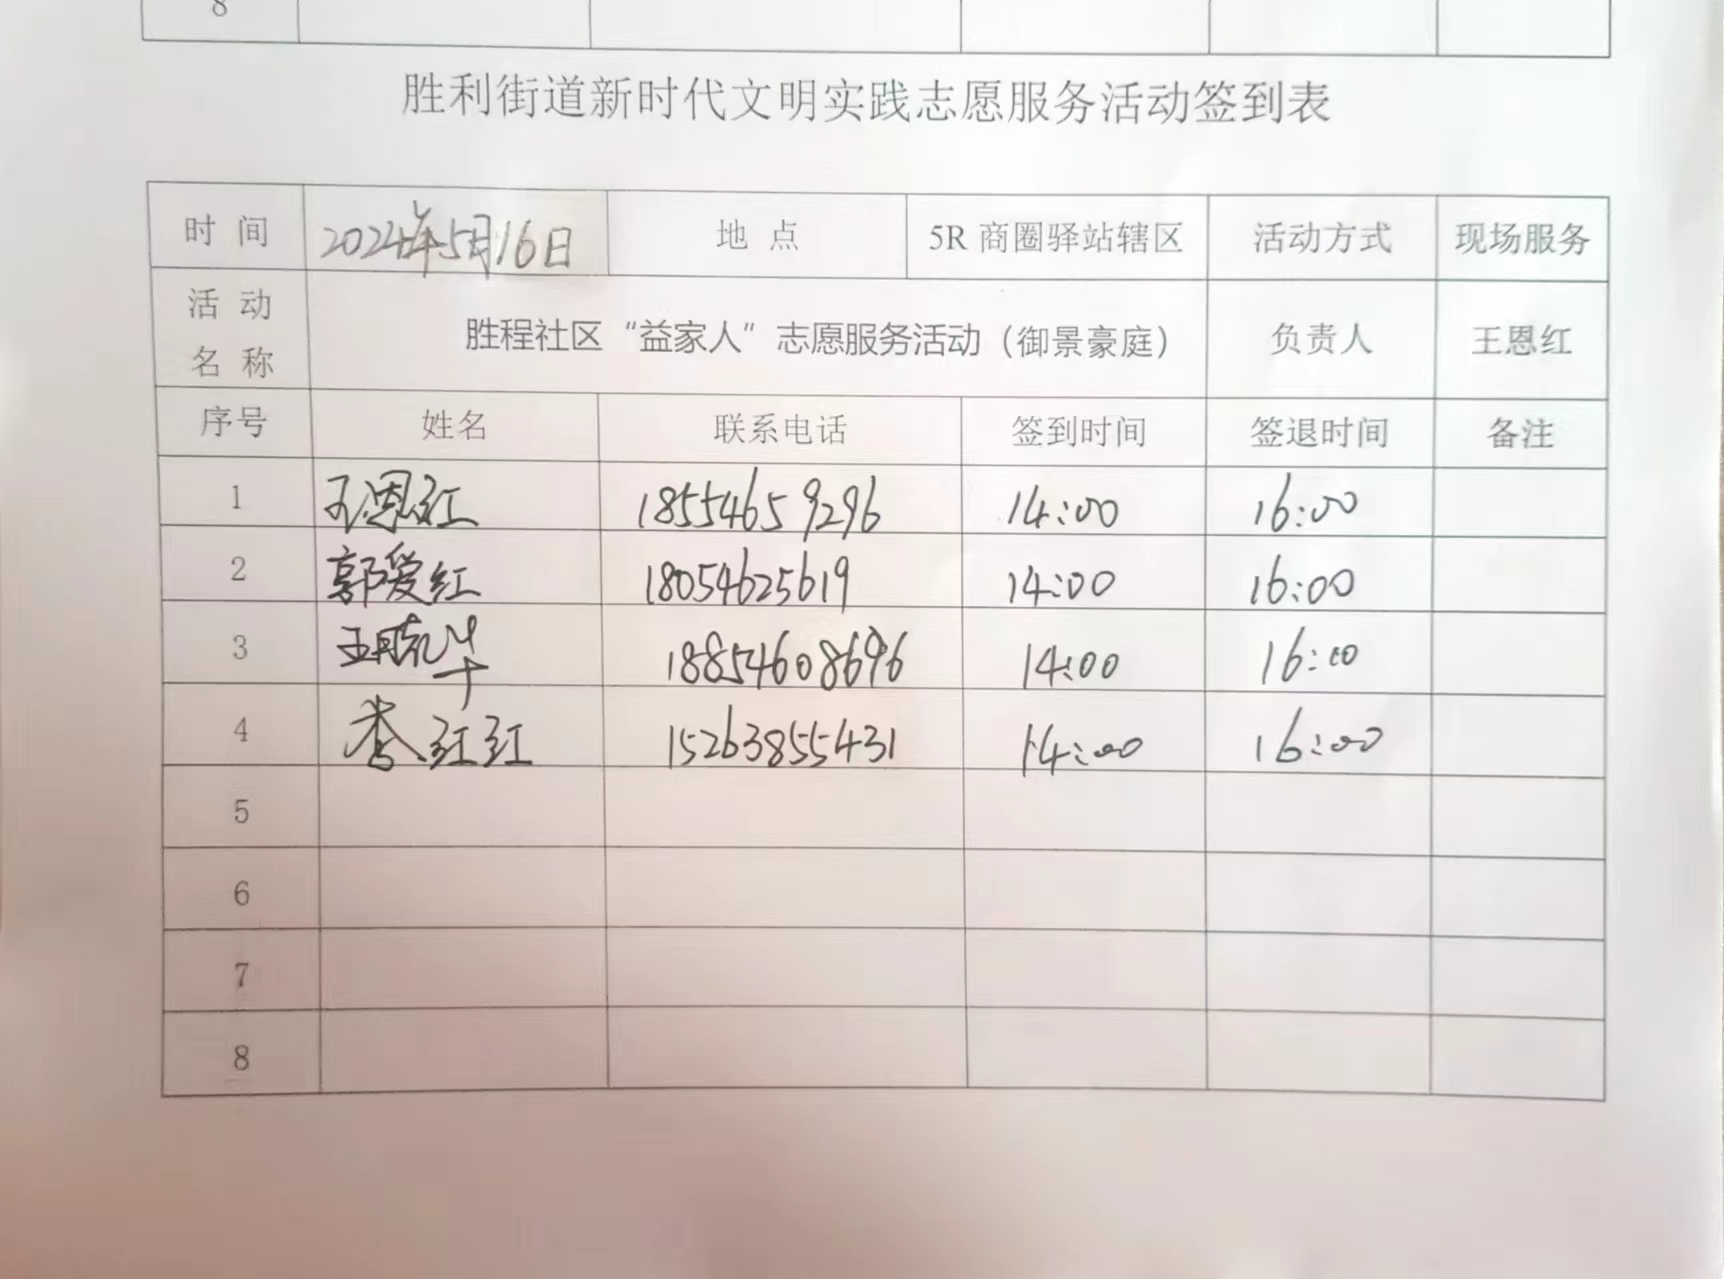 8
胜利街道新时代文明实践志愿服务活动签到表
时 间 2024年5月16日 地 点 5R 商圈驿站辖区 活动方式 现场服务
活 动
名 称 胜程社区“益家人”志愿服务活动（御景豪庭） 负责人 王恩红
序号 姓名 联系电话 签到时间 签退时间 备注
1 王恩红 18554659296 14:00 16:00
2 郭爱红 18054625619 14:00 16:00
3 18854608696 14:00 16:00
4 李红红 15263855431 14:00 16:00
5
6
7
8